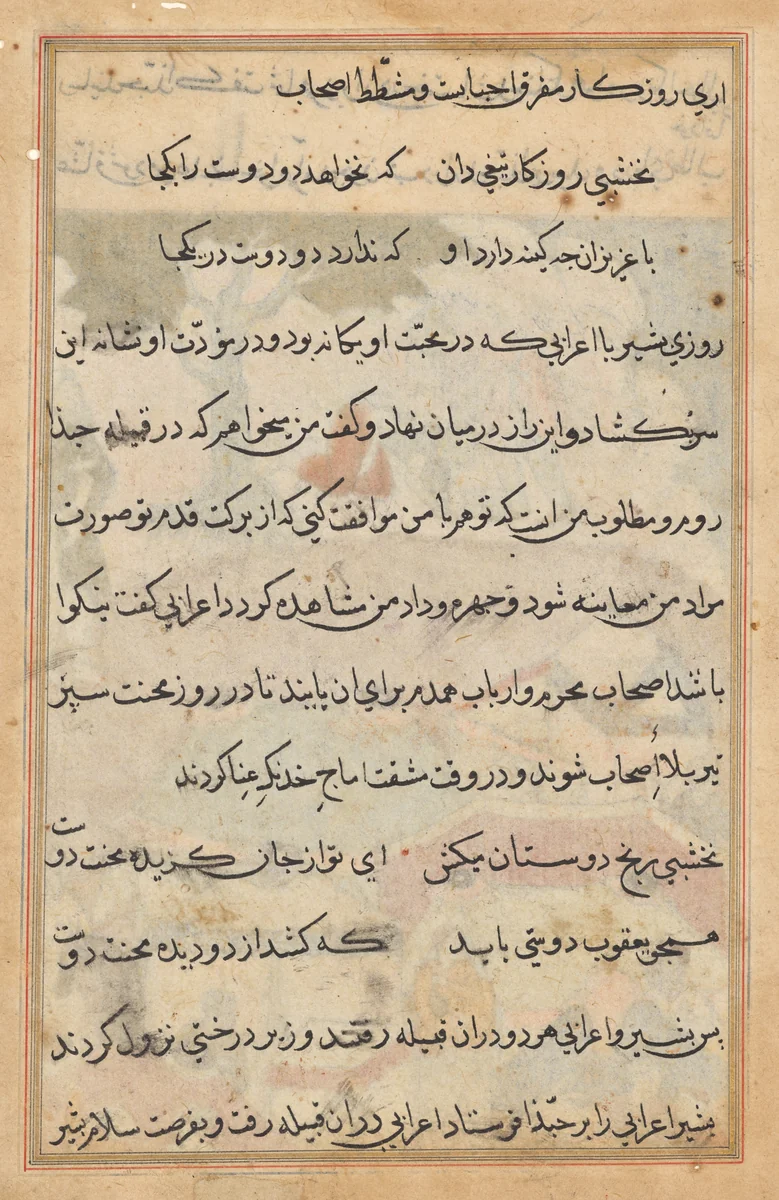 اري روزكار مفرق احبابست و مشطّط اصحاب
نخشبي روزكار تيغي دان كه نخواهد دو دوست را يكجا
با عزيزان جه كينه دارد او كه ندارد دو دوست در يكجا
روزي بشير با اعرابي كه در محبّت او يكانه بود و در مؤدّت او نشانه اين
سر بكشاد و اين راز درميان نهاد و كفت من ميخواهم كه در قبيله حبذا
روم و مطلوب من انست كه تو هم با من موافقت كني كه از بركت قدم تو صورت
مراد من معاينه شود و جهره وداد من مشاهده كردد اعرابي كفت نيكوا
باشد اصحاب محرم و ارباب همدم براي ان بايند تا در روز محنت سپر
تير بلا أصحاب شوند و در وقت مشقت اماج خدنك عنا كردند
نخشبي رنج دوستان ميكش اي تو از جان كزيده محنت دوست
همجو يعقوب دوستي بايد كه كشد از دو ديده محنت دوست
پس بشير و اعرابي هر دو دران قبيله رفتند و زير درختي نزول كردند
بشير اعرابي را بر حبّذا فرستاد اعرابي دران قبيله رفت و بفرصت سلام بشير